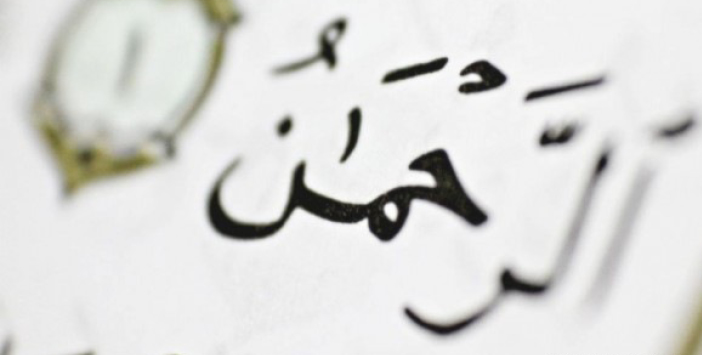 الرَّحْمَٰنُ
١